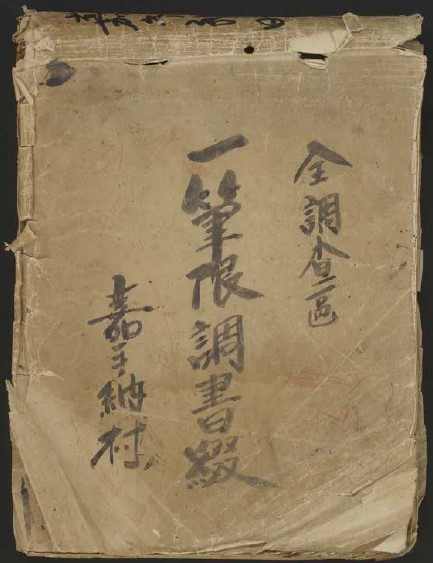 全調査区
一筆限調書綴
嘉手納村